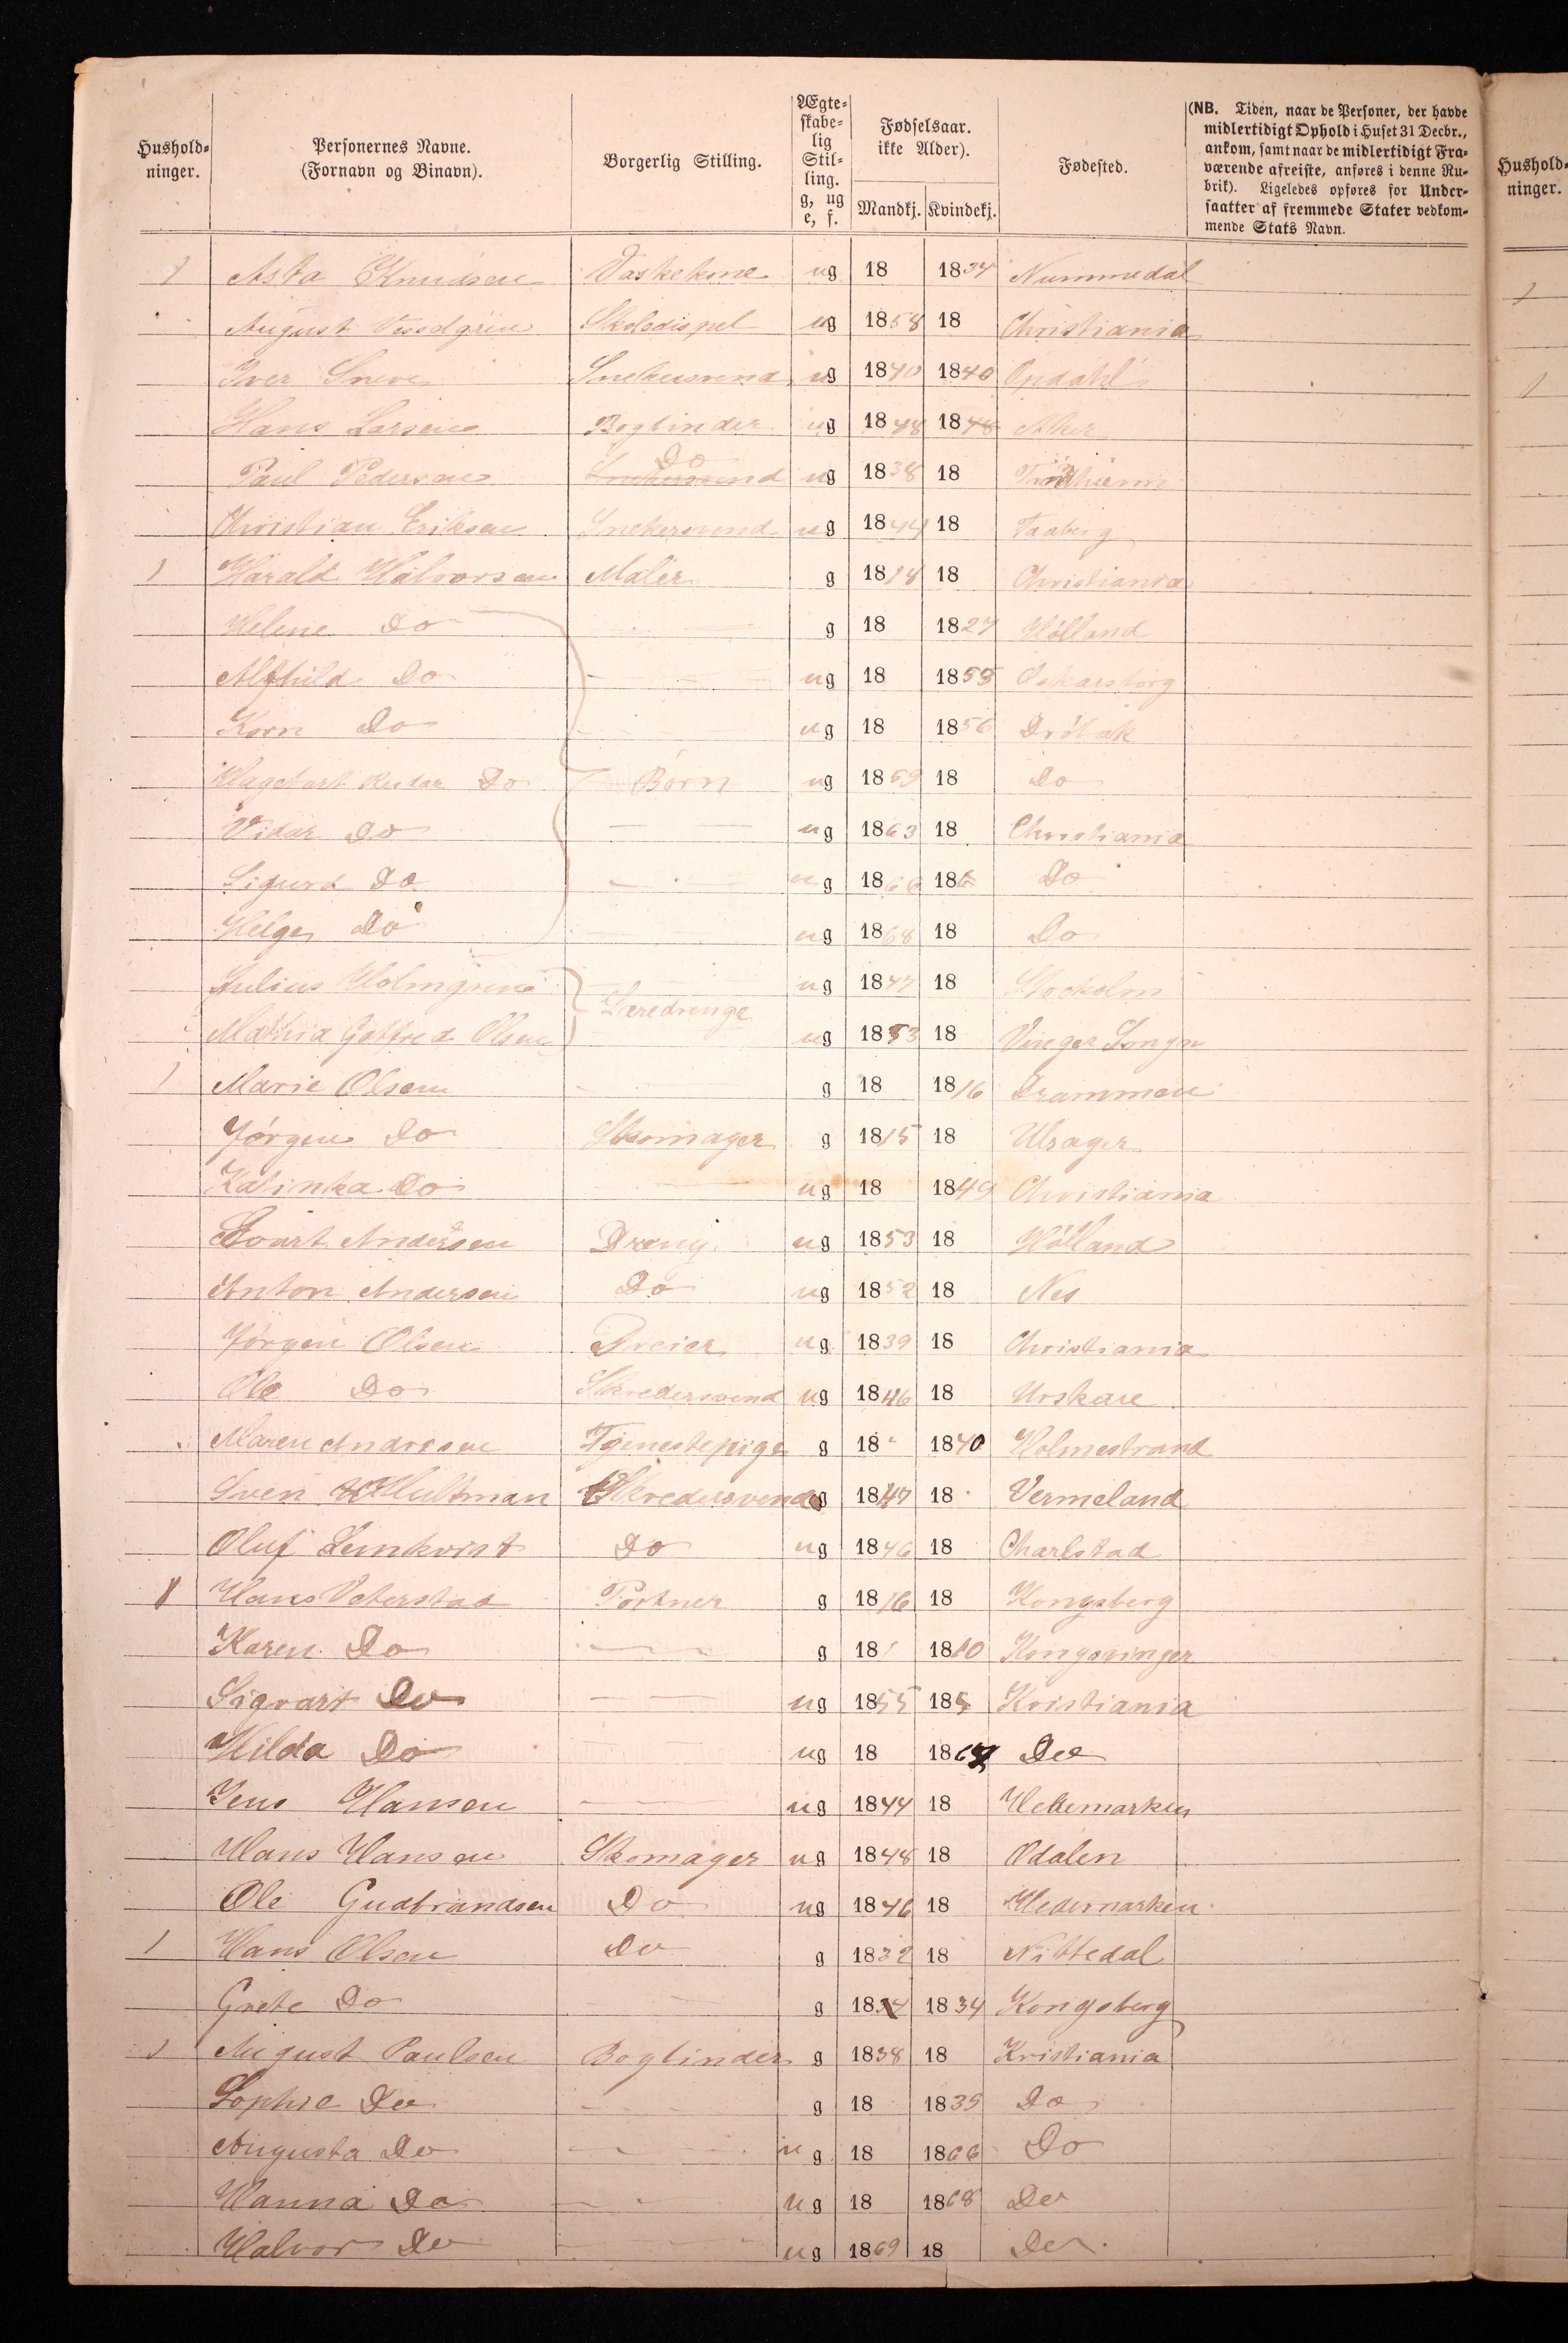 Hushold-
ninger.
Personernes Navne.
(Fornavn og Binavn).
Borgerlig Stilling.
Ægte-
skabe-
lig
Stil-
ling.
g, ug
e, f.
Fødselsaar.
ikke Alder).
Mandkj. Kvindekj.
Fødested.
(NB. Tiden, naar de Personer, der havde
midlertidigt Ophold i Huset 31 Decbr.,
ankom, samt naar de midlertidigt Fra-
værende afreiste, anføres i denne Ru-
brik). Ligeledes opføres for Under-
saatter af fremmede Stater vedkom-
mende Stats Navn.
Hushold-
ninger.
1 Asta Knudsen Vaskekone ug 18 1834 Nummedal
August Skoledispel ug 1858 18 Christiania
Iver Snekersvend ug 1840 1840 Opdahl
Hans Larsen Bogbinder ug 1848 1848 Aker
Paul Pedersen Do ug 1838 18
Christian Eriksen Snekersvend ug 1844 18 Faaberg
1 Harald Halvorsen Maler g 1818 18 Christiania
Helene Do g 18 1827 Hölland
Alfhild Do ug 18 1855 Oskarsborg
Korn Do ug 18 1856 Dröbak
Do Børn ug 1859 18 Do
Vidar Do ug 1863 18 Christiania
Sigurd Do ug 1866 186 Do
Helge Do ug 1868 18 Do
Julius Holmgren Læredrenge ug 1847 18 Stockolm
Mathia Gotfred Olsen ug 1853 18 Vinger Songn
1 Marie Olsen g 18 1816 Drammen
Jørgen Do Skomager g 1815 18 Ulsager
Katinka Do ug 18 1849 Christiania
Evart Andersen Dreng ug 1853 18 Hölland
Anton Andersen Do ug 1852 18 Nes
Jørgen Olsen Dreier ug 1839 18 Christiania
Ole Do Skredersvend ug 1846 18 Urskaue
Maren Andresen Tjenestepige g 18 1840 Holmestrand
Sven Hultman Skredersvend g 1847 18 Vermeland
Oluf Lemkvist Do ug 1846 18 Charlstad
1 Hans Veterstad Portner g 1816 18 Kongsberg
Karen Do g 18 1810 Kongsvinger
Sigvart Do ug 1855 185 Kristiania
Hilda Do ug 18 186 Do
Jens Hansen ug 1844 18 Hedemarken
Hans Hansen Skomager ug 1848 18 Odalen
Ole Gudbrandsen Do ug 1846 18 Hedemarken
1 Hans Olsen Do g 1832 18 Nittedal
Grete Do g 1834 1834 Kongsberg
1 August Paulsen Bogbinder g 1838 18 Kristiania
Sophie Do g 18 1839 Do
Augusta Do ug 18 1866 Do
Hanna Do ug 18 1868 Do
Halvor Do ug 1869 18 Do
1
1